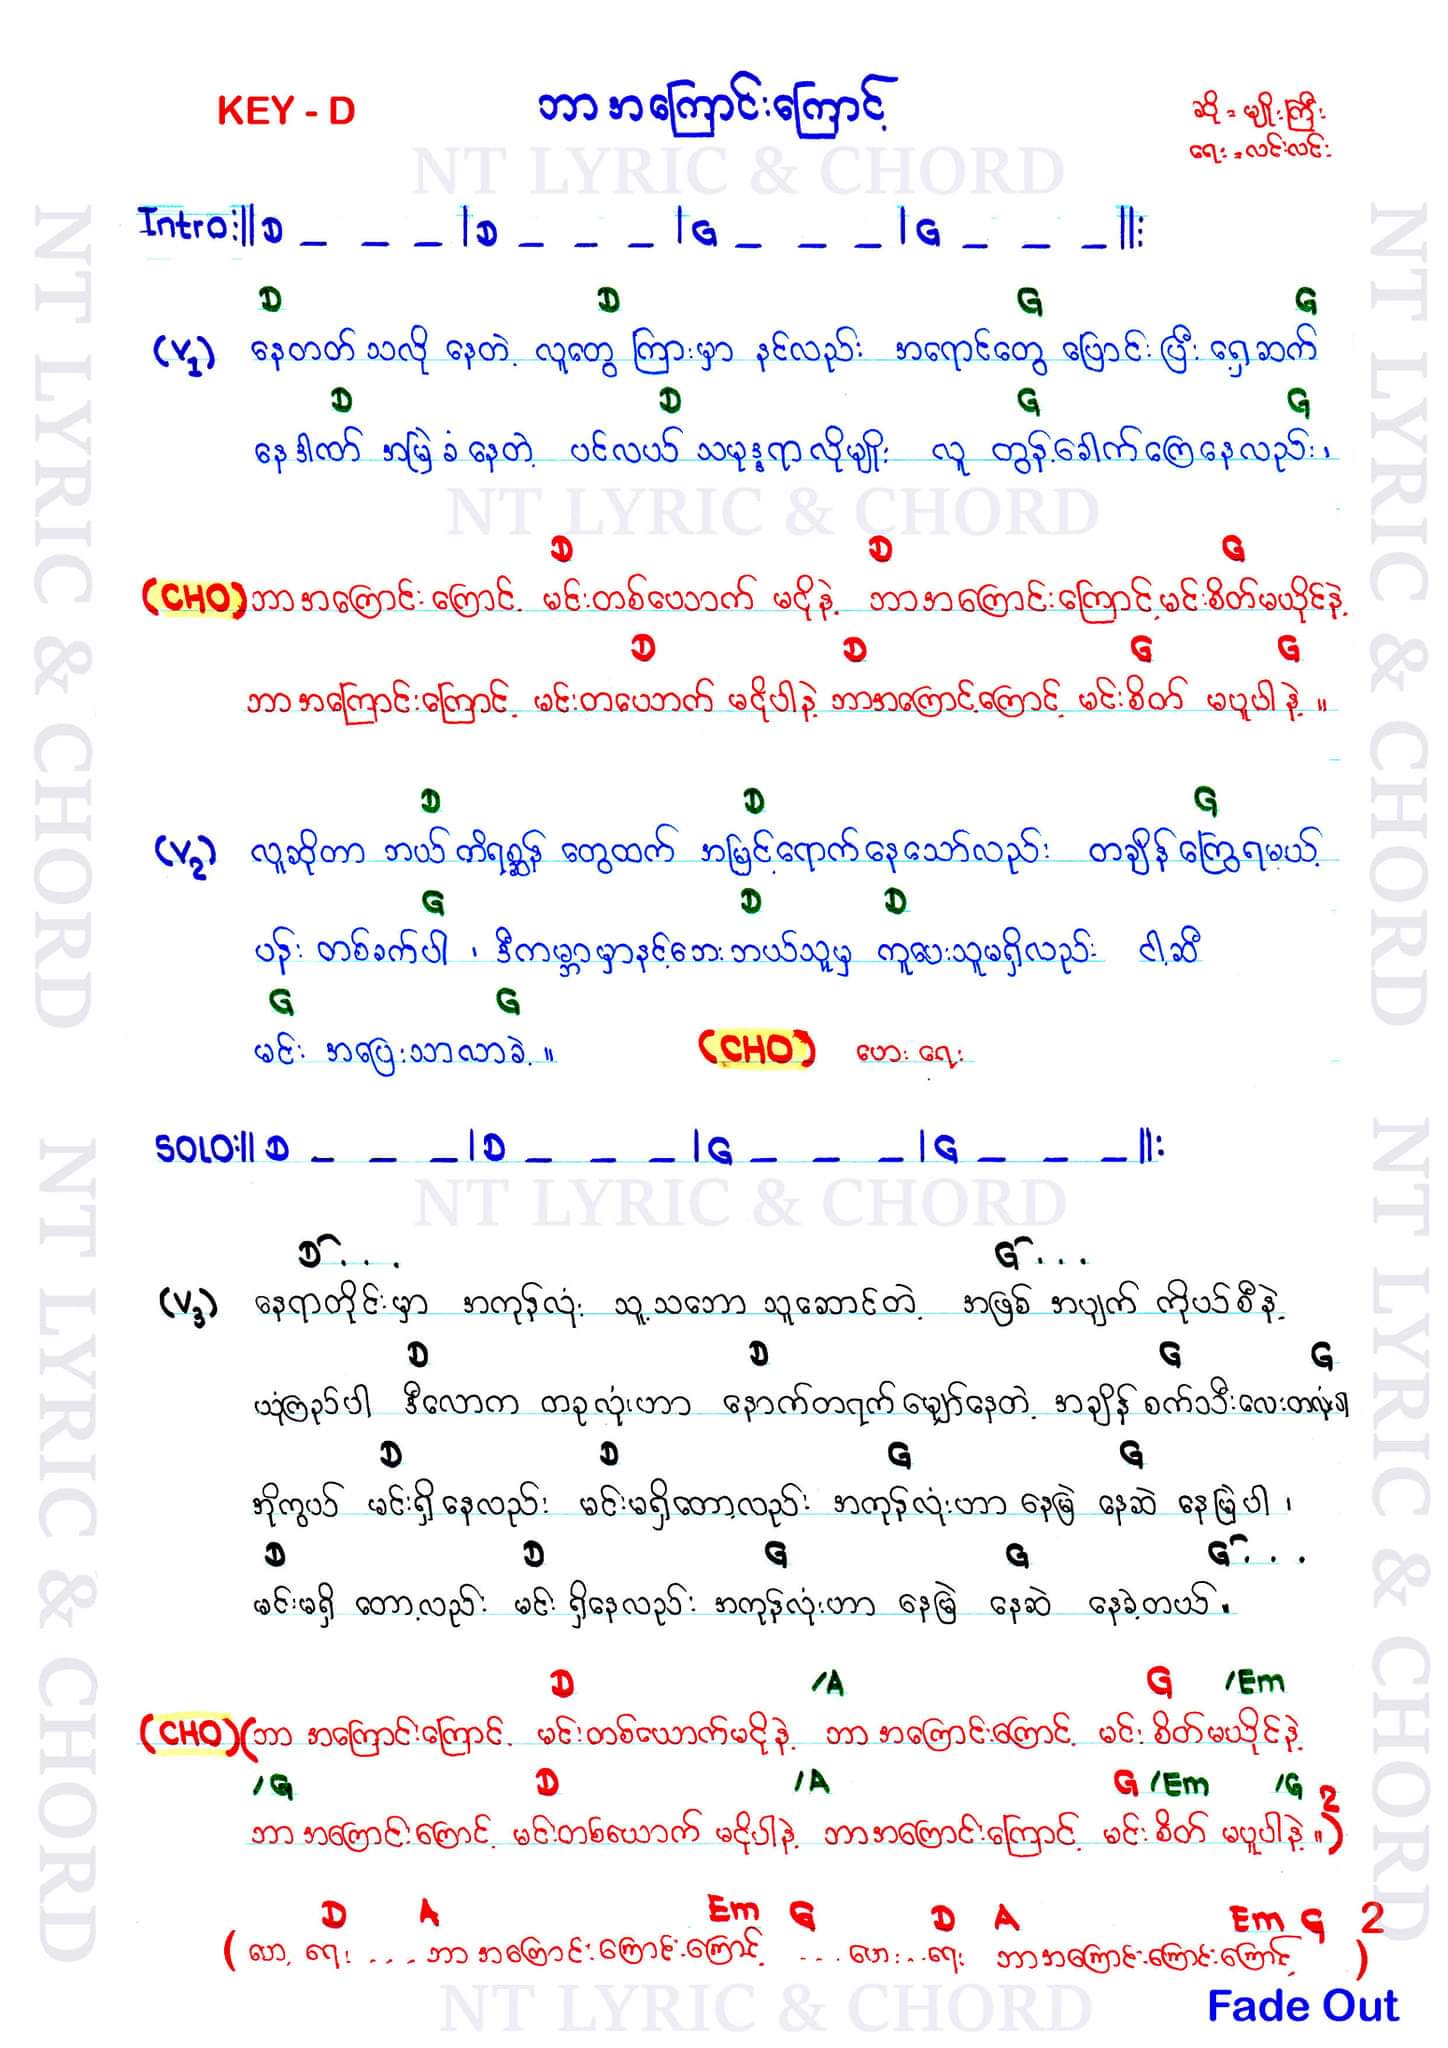 KEY - D
ဘာအကြောင်းကြောင့်
ဆို - မျိုးကြီး
ရေး - လင်းလင်း
NT LYRIC & CHORD
Intro:|| D _ _ _ | D _ _ _ | G _ _ _ | G _ _ _ ||:
D D G G
(V1) နေတတ်သလို နေတဲ့ လူတွေ ကြားမှာ နင်လည်း အရောင်တွေ ပြောင်းပြီး ရှေ့ဆက်
D D G G
နေဒါဏ် အမြဲခံနေတဲ့ ပင်လယ် သမုဒ္ဒရာလိုမျိုး လူ တွန့်ခေါက်ကြေနေလည်း၊
NT LYRIC & CHORD
D D G
(CHO) ဘာအကြောင်းကြောင့် မင်းတစ်ယောက် မငိုနဲ့ ဘာအကြောင်းကြောင့် မင်းစိတ်မယိုင်နဲ့
D D G G
ဘာအကြောင်းကြောင့် မင်းတယောက် မငိုပါနဲ့ ဘာအကြောင့်ကြောင့် မင်းစိတ် မပူပါနဲ့ ။
D D G
(V2) လူဆိုတာ ဘယ်ကိရစ္ဆန် တွေထက် အမြင့်ရောက်နေသော်လည်း တချိန်ကြွေရမယ့်
G D D
ပန်း တစ်ခက်ပါ ၊ ဒီကမ္ဘာမှာနင့်ဘေးဘယ်သူမှ ကူပေးသူမရှိလည်း ငါ့ဆီ
G G
မင်း အပြေးသာလာခဲ့ ။ (CHO) ဟေး ရေး
SOLO:|| D _ _ _ | D _ _ _ | G _ _ _ | G _ _ _ ||:
NT LYRIC & CHORD
D . . . G . . .
(V3) နေရာတိုင်းမှာ အကုန်လုံး သူ့သဘော သူဆောင်တဲ့ အဖြစ် အပျက် ကိုယ်စီနဲ့
D D G G
ယုံကြည်ပါ ဒီလောက တခုလုံးဟာ နောက်တရက်မျှော်နေတဲ့ အချိန် စက်ဝိုင်းလေးတလုံးပါ
D D G G
အိုကွယ် မင်းရှိနေလည်း မင်းမရှိတော့လည်း အကုန်လုံးဟာ နေမြဲ နေဆဲ နေမြဲပါ ၊
D D G G G . . .
မင်းမရှိ တော့လည်း မင်း ရှိနေလည်း အကုန်လုံးဟာ နေမြဲ နေဆဲ နေခဲ့တယ် ။
D /A G /Em
(CHO) (ဘာ အကြောင်းကြောင့် မင်းတစ်ယောက်မငိုနဲ့ ဘာအကြောင်းကြောင့် မင်း စိတ်မယိုင်နဲ့
/G D /A G /Em /G
ဘာအကြောင်းကြောင့် မင်းတစ်ယောက် မငိုပါနဲ့ ဘာအကြောင်းကြောင့် မင်းစိတ် မပူပါနဲ့ ။)2
D A Em G D A Em G 2
( ဟေ့ ရေး .... ဘာအကြောင်းကြောင်းကြောင့် ... ဟေး..ရေး ဘာအကြောင်းကြောင်းကြောင့် )
NT LYRIC & CHORD
Fade Out
NT LYRIC & CHORD
NT LYRIC & CHORD
NT LYRIC & CHORD
NT LYRIC & CHORD